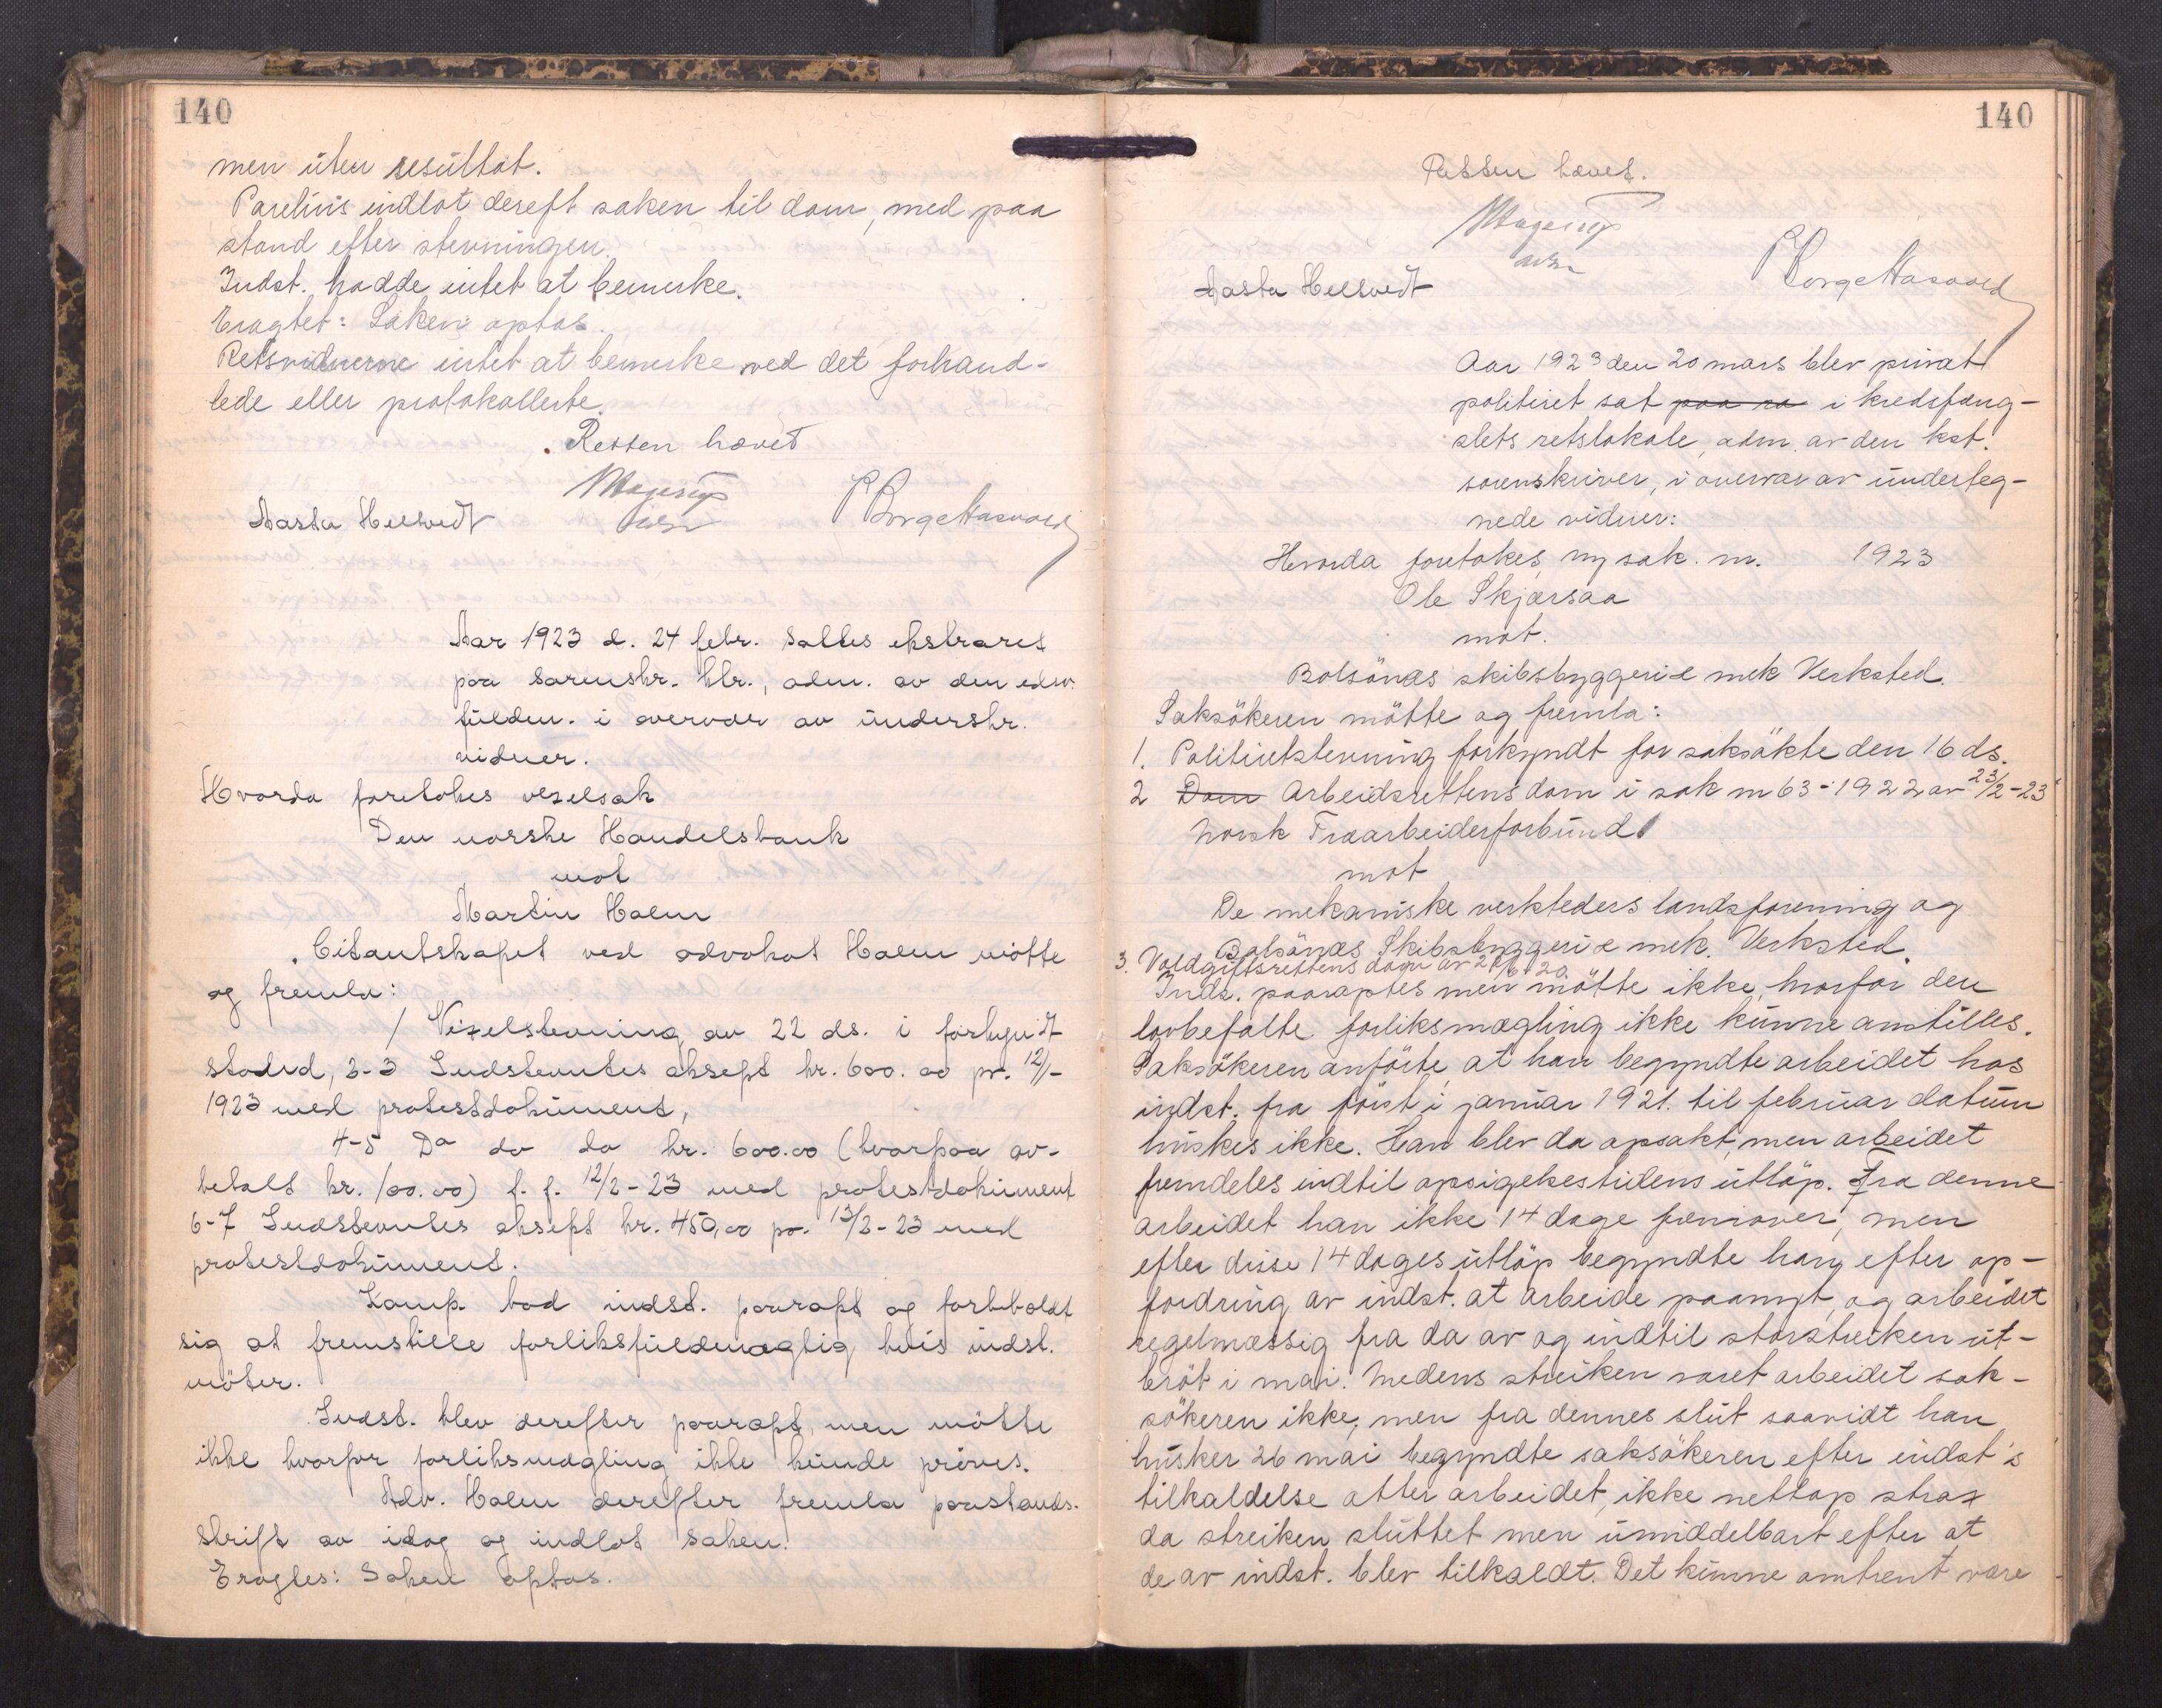 140
men uten resultat.
Parelius indlot dereft saken til dom, med paa
stand efter stevningen.
Indst. hadde intet at bemerke.
Eragtet: Saken optas.
Retsvidnerne intet at bemerke ved det forhand-
lede eller protokollerte.
Retten hævet
Aasta Hellvedt
Aar 1923 d. 24 febr. sattes ekstraret
paa sorenskr. ktr., adm. av den edsv.
fuldm. i overvær av underskr.
vidner.
Hvorda foretokes vexelsak
Den norske Handelsbank
mot
Martin Holm
Citantskapet ved advokat Holm møtte
og fremla:
1 Vexelstevning av 22 ds. i forkyndt
stand, 2-3 Indstevntes aksept kr. 600.00 pr. 12/1-
1923 med protestdokument,
4-5 Do do do kr. 600.00 (hvorpaa av-
betalt kr. 100.00) f. f. 12/2-23 med protestdokument
6-7 Indstevntes aksept kr. 450,00 pr. 13/2-23 med
protestdokument.
Komp. bad indst. paaropt og forbeholdt
sig at fremstille forliksfuldmægtig hvis indst.
møter.
Indst. blev derefter paaropt, men møtte
ikke hvorfor forliksmægling ikke kunde prøves.
Adv. Holm derefter fremla paastands-
skrift av idag og indlot saken.
Eragtes: Saken optas.
140
Retten hævet.
Aasta Hellvedt
Aar 1923 den 20 mars blev privat
politiret sat paa so i kredsfæng-
slets retslokale, adm. av den kst.
sorenskriver, i overvær av underteg-
nede vidner:
Hvorda foretokes ny sak. nr. 1923
Ole Skjærsaa
mot.
Bolsönes skibsbyggeri & mek Verksted.
Saksökeren mötte og fremla:
1. Politiretstevning forkyndt for saksökte den 16 ds.
2 Dom Arbeidsrettens dom i sak nr 63-1922 av 23/2-23
Norsk Træarbeiderforbund
mot
De mekaniske verksteders landsforening og
Bolsönes Skibsbyggeri & mek. Verksted.
3. Voldgiftsrettens dom av 20.
Inds. paaroptes men mötte ikke, hvorfor den
lovbefalte forliksmægling ikke kunne anstilles.
Saksökeren anförte, at han begyndte arbeidet hos
indst. fra först i januar 1921. til februar datum
huskes ikke. Han blev da opsakt, men arbeidet
fremdeles indtil opsigelsestidens utlöp. Fra denne
arbeidet han ikke 14 dage fremover, men
efter disse 14 dages utlöp begyndte han, efter op-
fordring av indst. at arbeide paanyt, og arbeidet
regelmæssig fra da av og indtil storstreiken ut-
bröt i mai. Medens streiken varet arbeidet sak-
sökeren ikke; men fra dennes slut saavidt han
husker 26 mai begyndte saksökeren efter indst's
tilkaldelse atter arbeidet, ikke nettop strax
da streiken sluttet men umiddelbart efter at
de av indst. blev tilkaldt. Det kunne omtrent være